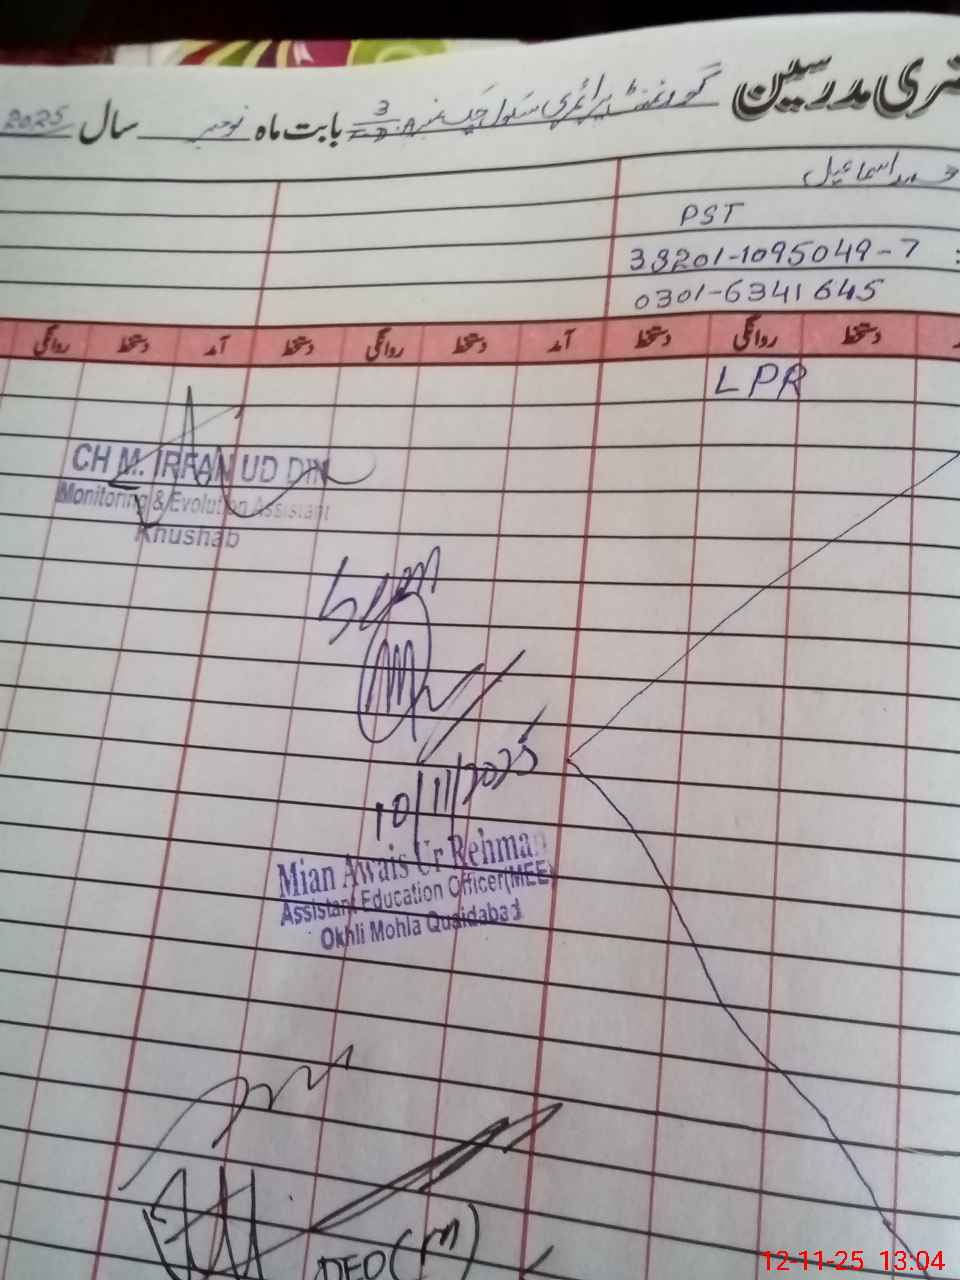 حاضری مدرسین گورنمنٹ پرائمری سکول چک نمبر 3 بابت ماہ نومبر سال 2025
محمد اسماعیل
PST
38201-1095049-7
0301-6341645
دستخط روانگی دستخط آمد دستخط روانگی دستخط آمد دستخط روانگی
LPR
CH M. IRFAN UD DIN
Monitoring & Evolution Assistant
Khushab
10/11/2025
Mian Awais Ur Rehman
Assistant Education Officer(MEE)
Okhli Mohla Quaidabad
DEO (m)
12-11-25 13:04